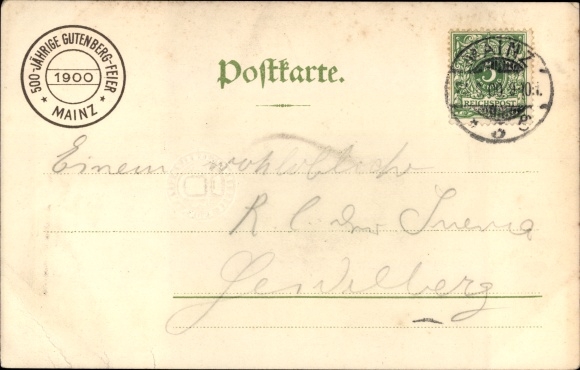 500-JÄHRIGE GUTENBERG-FEIER
1900
MAINZ
Postkarte.
MAINZ
5
REICHSPOST
Einem
R. C. der
Heidelberg